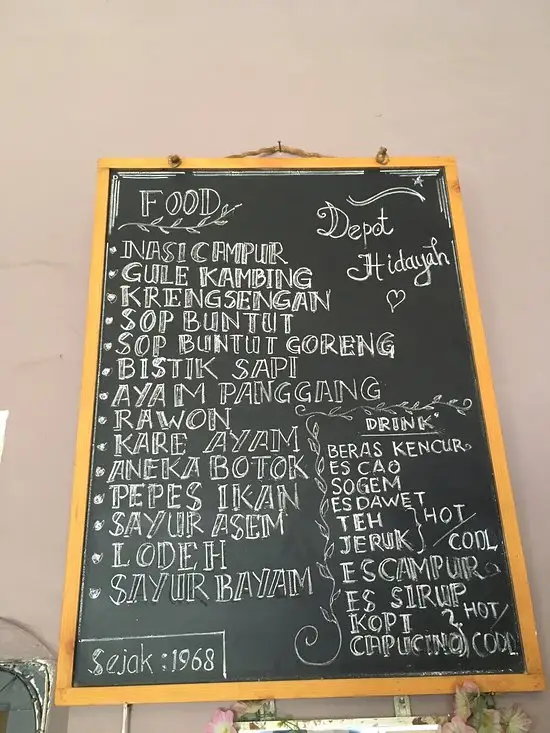 FOOD
Depot
Hidayah
NASI CAMPUR
GULE KAMBING
KRENGSENGAN
SOP BUNTUT
SOP BUNTUT GORENG
BISTIK SAPI
AYAM PANGGANG
RAWON
KARE AYAM
ANEKA BOTOK
PEPES IKAN
SAYUR ASEM
LODEH
SAYUR BAYAM
DRINK
BERAS KENCUR
ES CAO
SOGEM
ES DAWET
TEH
JERUK } HOT / COOL
ES CAMPUR
ES SIRUP
KOPI
CAPUCINO } HOT / COOL
Sejak : 1968